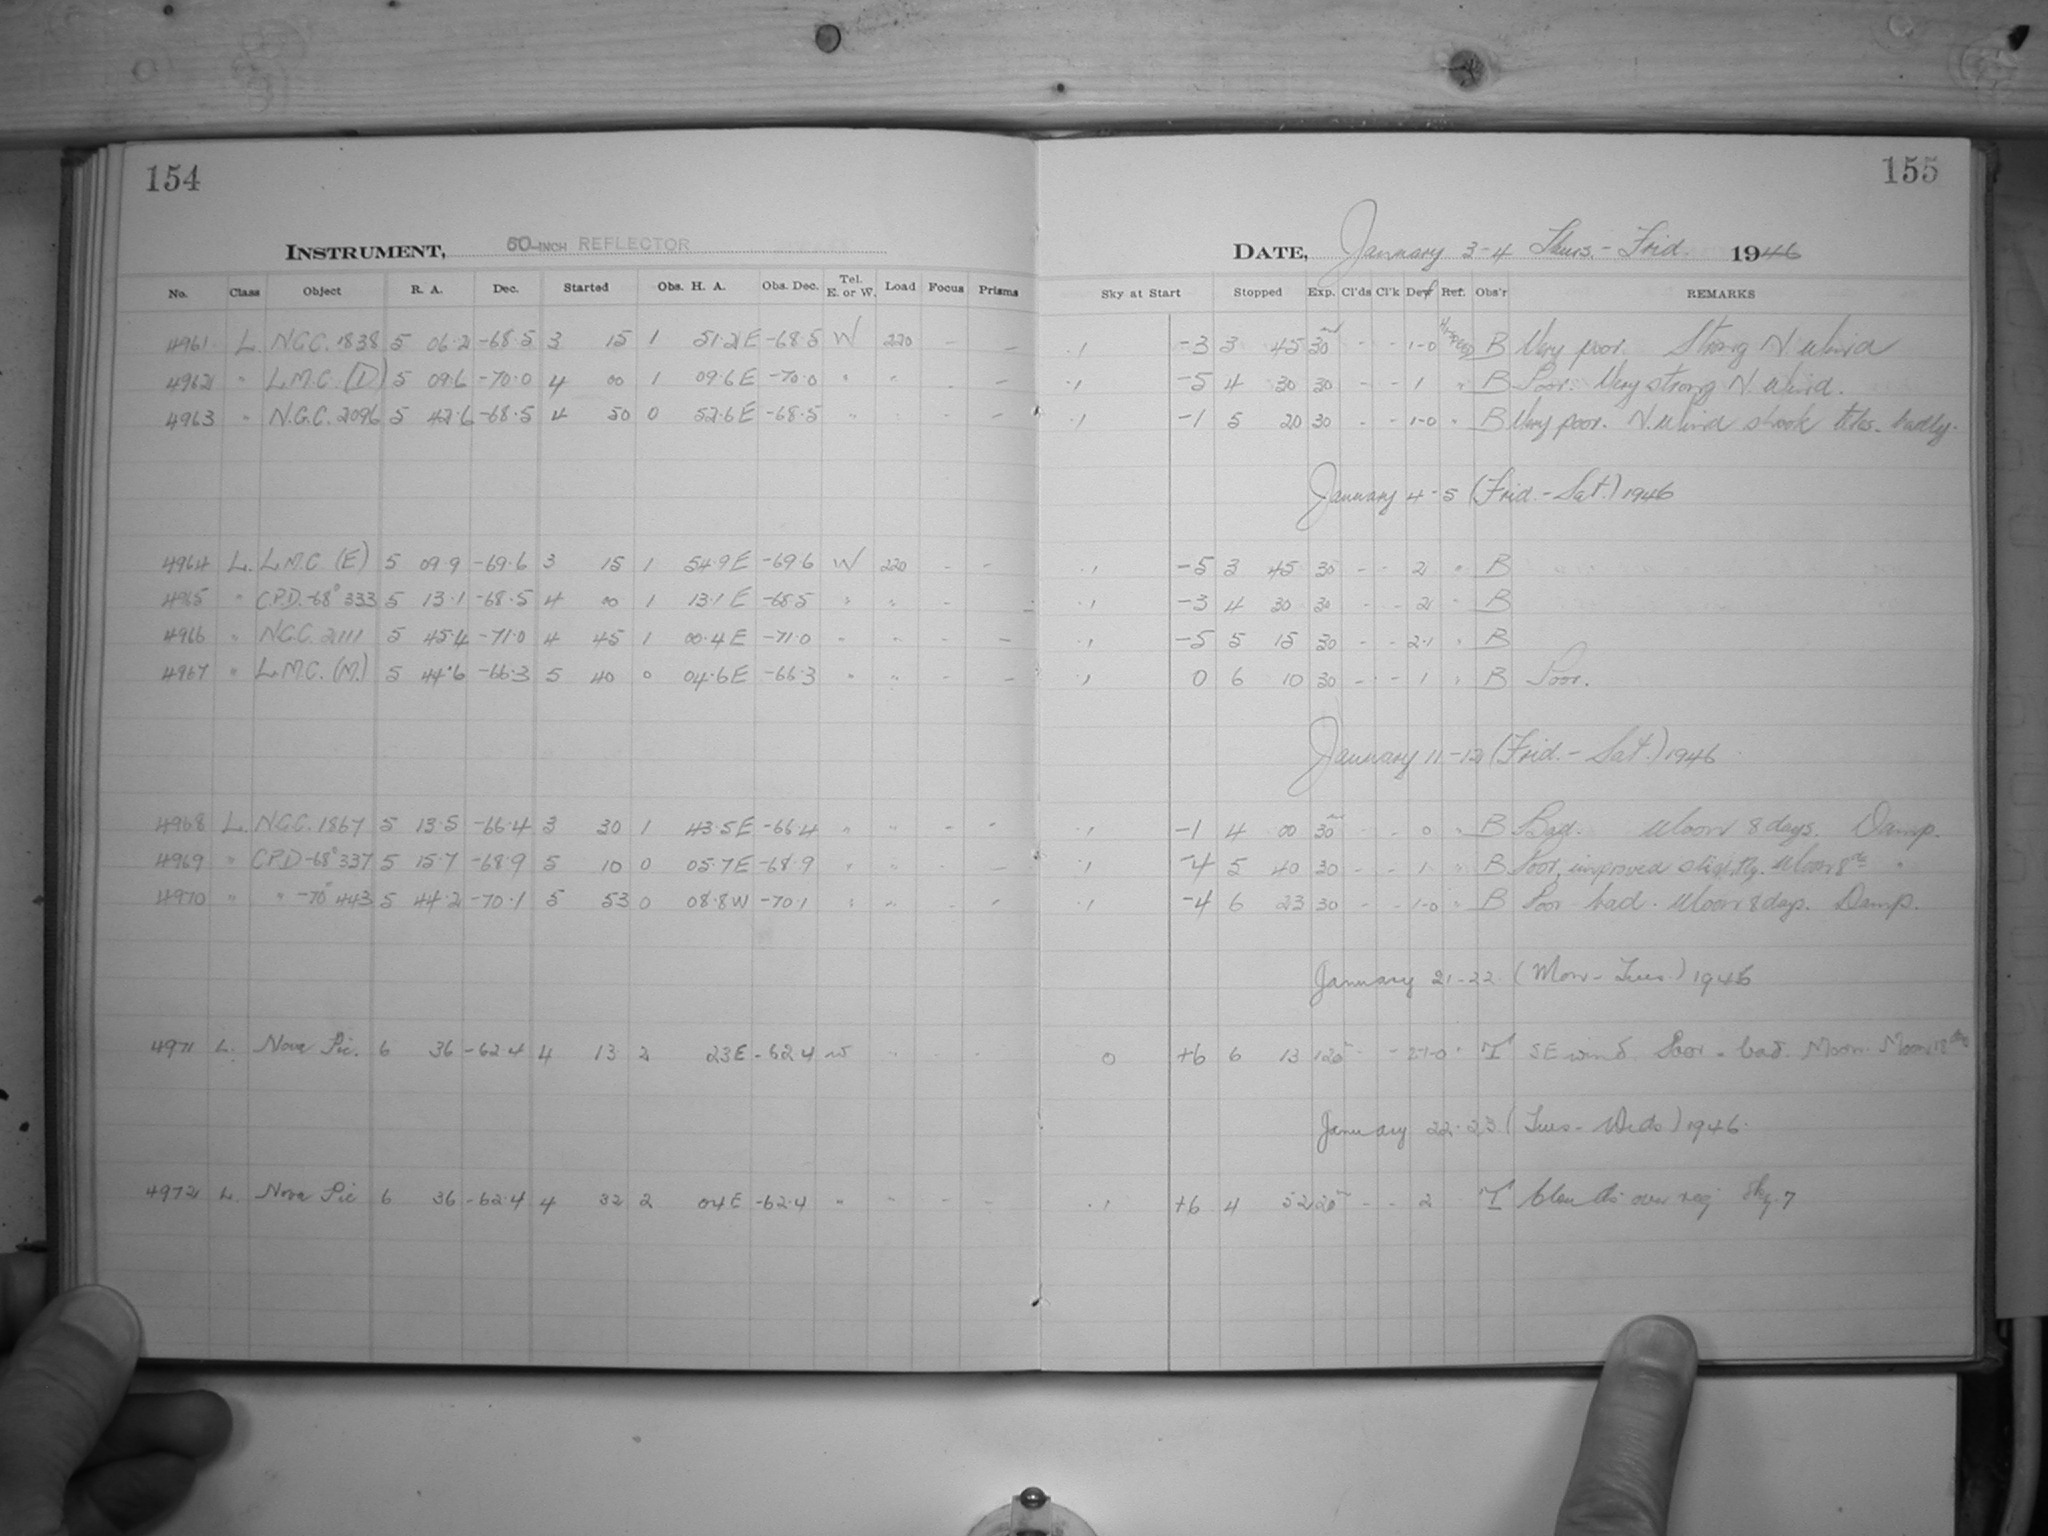 154
155
INSTRUMENT, 60-INCH REFLECTOR
DATE, January 3-4 Thurs.-Frid. 1946
No. Class Object R. A. Dec. Started Obs. H. A. Obs. Dec. Tel. E. or W. Load Focus Prisms Sky at Start Stopped Exp. Cl'ds Cl'k Def Ref. Obs'r REMARKS
4961 L. N.G.C. 1838 5 06.2 -68.5 3 15 1 51.2 E -68.5 W 220 - - .1 -3 3 45 30 - - 1-0 B Very poor. Strong N wind
4962 " L.M.C. (D) 5 09.6 -70.0 4 00 1 09.6 E -70.0 " " - - .1 -5 4 30 30 - - 1 " B Poor. Very strong N. wind.
4963 " N.G.C. 2096 5 42.6 -68.5 4 50 0 52.6 E -68.5 " " - - .1 -1 5 20 30 - - 1-0 " B Very poor. N. wind shook teles. badly.
January 4-5 (Frid.-Sat.) 1946
4964 L. L.M.C. (E) 5 09.9 -69.6 3 15 1 54.9 E -69.6 W 220 - - .1 -5 3 45 30 - - 2 " B
4965 " C.P.D. -68° 333 5 13.1 -68.5 4 00 1 13.1 E -68.5 " " - - .1 -3 4 30 30 - - 2 " B
4966 " N.G.C. 2111 5 45.4 -71.0 4 45 1 00.4 E -71.0 " " - - .1 -5 5 15 30 - - 2-1 " B
4967 " L.M.C. (M.) 5 44.6 -66.3 5 40 0 04.6 E -66.3 " " - - .1 0 6 10 30 - - 1 " B Poor.
January 11-12 (Frid.-Sat.) 1946
4968 L. N.G.C. 1867 5 13.5 -66.4 3 30 1 43.5 E -66.4 " " - - .1 -1 4 00 30 - - 0 " B Bad. Moon 8 days. Damp.
4969 " C.P.D -68° 337 5 15.7 -68.9 5 10 0 05.7 E -68.9 " " - - .1 -4 5 40 30 - - 1 " B Poor, improved slightly. Moon 8 "
4970 " " -70° 443 5 44.2 -70.1 5 53 0 08.8 W -70.1 " " - - .1 -4 6 23 30 - - 1-0 " B Poor - bad. Moon 8 days. Damp.
January 21-22 (Mon-Tues.) 1946
4971 L. Nova Pic. 6 36 -62.4 4 13 2 23 E -62.4 W " - - 0 +6 6 13 120m - - 2-1-0 " T SE wind. Poor - bad. Moon. Moon 18
January 22-23 (Tues-Weds) 1946
4972 L. Nova Pic 6 36 -62.4 4 32 2 04 E -62.4 " " - - .1 +6 4 52 20m - - 2 T Clouds over Sky .7